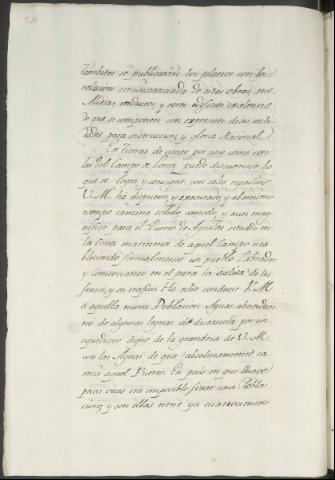 tambien se publicarán los planos con la
relacion circunstanciada de estas obras, sus
Minas, conductos, y otros edificios excelentes
de que se componen con expresion de sus utili-
dades para instruccion y gloria Nacional.
En tierras de riego por uno como son
las del Campo de Lorca pudo discurrirse lo
que se logra y consigue con
V. M. ha dispuesto y executado, y al mismo
tiempo camino solido comodo, y aun mag-
nifico para el Puerto de Aguilas situado en
la Costa maritima de aquel Campo esta-
bleciendo formalmente un pueblo Labrador
y Comerciante en el para la salida de los
frutos, y su trafico. Ha echo conducir V. M.
á aquella nueva Poblacion Aguas abundan-
tes de algunas leguas de distancia por un
aqueducto digno de la grandeza de V. M.
con las Aguas de que absolutamente ca-
recia aquel Puerto. En pais en que llueve
pocas veces era imposible formar una Pobla-
cion, y con ellas tiene ya cuatrocientos